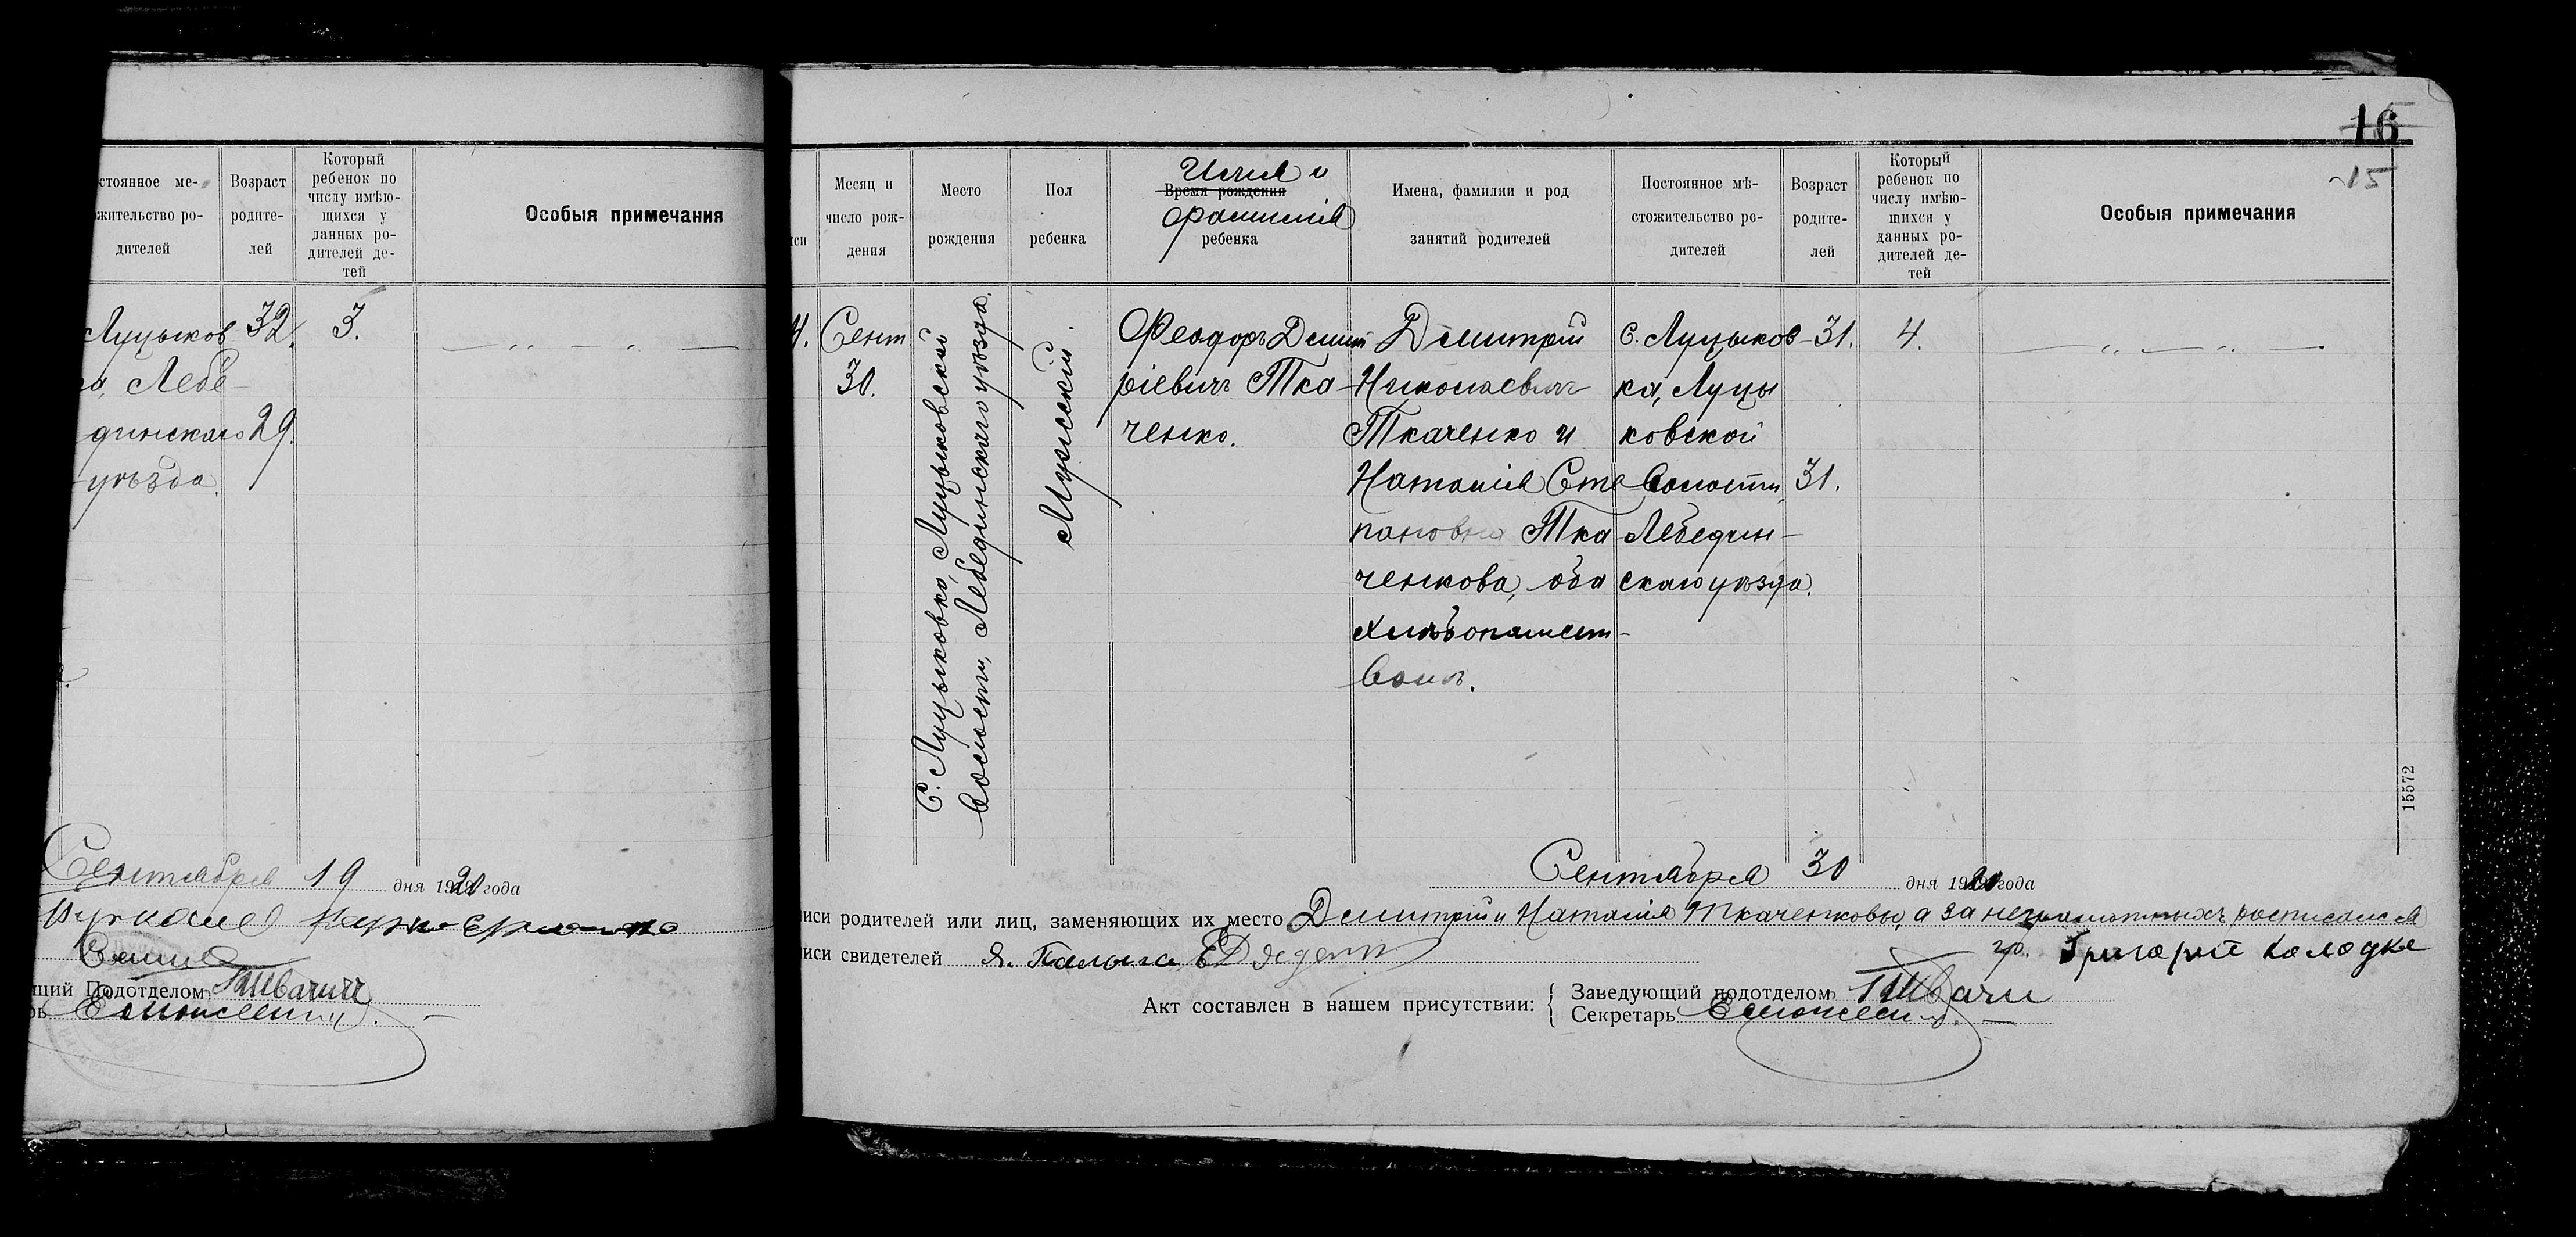 стоянное ме-
жительство ро-
дителей
Возраст
родите-
лей
Который
ребенок по
числу имѣю-
щихся у
данных ро-
дителей де-
тей
Особыя примечания
Луцыков
Лебе-
динскаго
уѣзда.
32.
29.
3.
Сентября 19 дня 1920 года
щий Подотделом
16
15
иси
Месяц и
число рож-
дения
Место
рождения
Пол
ребенка
Имя и
Время рождения
фамилія
ребенка
Имена, фамилии и род
занятий родителей
Постоянное мѣ-
стожительство ро-
дителей
Возраст
родите-
лей
Который
ребенок по
числу имѣю-
щихся у
данных ро-
дителей де-
тей
Особыя примечания
4.
Сент
30.
С. Луцыковка, Луцыковской
волости, Лебединскаго уѣзда.
Мужескій.
Феодоръ Дмит
ріевичъ Тка-
ченко.
Дмитрій
Николаевичъ
Ткаченко и
Наталія Сте
пановна Тка
ченкова, оба
хлѣбопашест-
вомъ.
с. Луцыков-
ка, Луцы
ковской
волости,
Лебедин-
скаго уѣзда.
31.
31.
4.
15572
Сентября 30 дня 1920 года
иси родителей или лиц, заменяющих их место Дмитрій и Наталія Ткаченковы, а за неграмотныхъ росписался
гр. Григорій Колодка
иси свидетелей Я.
Акт составлен в нашем присутствии:
Заведующий подотделом
Секретарь